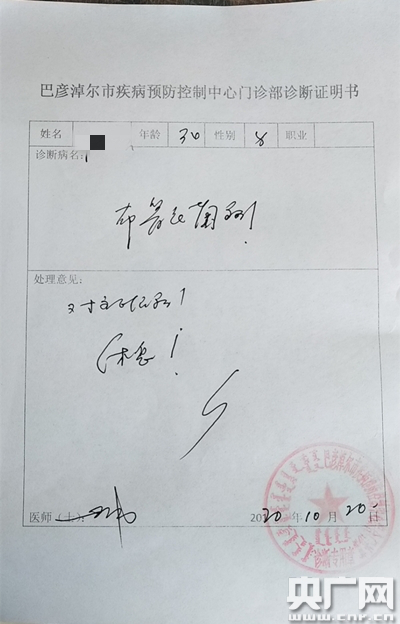 巴彦淖尔市疾病预防控制中心门诊部诊断证明书
姓名 年龄 30 性别 职业
诊断病名：
布鲁氏菌病！
处理意见：
对症治疗！
休息！
医师（士）：
2020年10月20日
央广网
www.cnr.cn